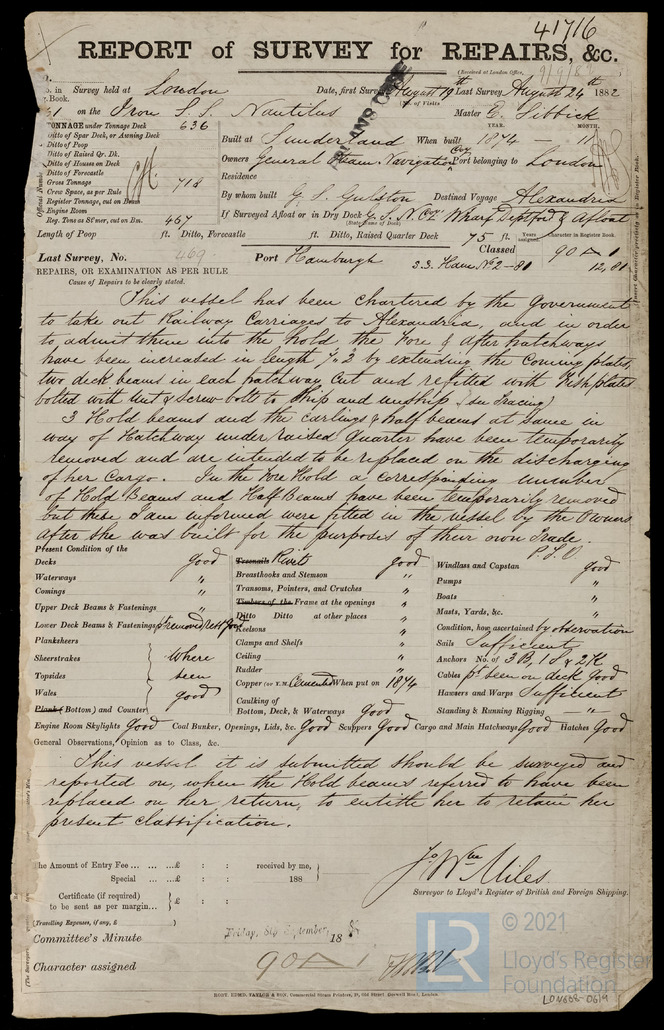 41716
REPORT of SURVEY for REPAIRS, &c.
(Received at London Office,
No. in Survey held at London Date, first Survey August 19th Last Survey August 24th 1882
Book. (No. of Visits
on the Iron S.S. Nautilus Master E. Sibbick
TONNAGE under Tonnage Deck 636
Ditto of Spar Deck, or Awning Deck
Ditto of Poop
Ditto of Raised Qr. Dk.
Ditto of Houses on Deck
Ditto of Forecastle
Gross Tonnage
Crew Space, as per Rule
Register Tonnage, cut on Beam
Engine Room
Reg. Tons as St'mer, cut on Bm. 467
YEAR. MONTH.
Built at Sunderland When built 1874 - 11
Owners General Steam Navigation Coy Port belonging to London
Residence
By whom built G. S. Gulston Destined Voyage Alexandria
If Surveyed Afloat or in Dry Dock G. S. N. Coy Wharf Deptford & Afloat
(State name of Dock)
Length of Poop ft. Ditto, Forecastle ft. Ditto, Raised Quarter Deck 75 ft. Years assigned. Character in Register Book.
Last Survey, No. 469 Port Hamburgh S.S. Ham. No 2-81 Classed 90 A 1
12,81
REPAIRS, OR EXAMINATION AS PER RULE
Cause of Repairs to be clearly stated.
This vessel has been chartered by the Government
to take out Railway Carriages to Alexandria, and in order
to admit them into the hold, the Fore & After hatchways
have been increased in length 7.3 by extending the Coming plates,
two deck beams in each hatchway cut and refitted with Fishplates
bolted with nut & screw bolts to ship and unship (see Tracing)
3 Hold beams and the carlings & half beams at same in
way of Hatchway under raised Quarter have been temporarily
removed and are intended to be replaced on the discharging
of her Cargo. In the Fore Hold a corresponding number
of Hold Beams and Half Beams have been temporarily removed
but these I am informed were fitted in the vessel by the Owners
after she was built for the purposes of their own Trade.
P.T.O.
Present Condition of the
Decks good
Waterways "
Comings "
Upper Deck Beams & Fastenings "
Lower Deck Beams & Fastenings pt removed rest good
Planksheers
Sheerstrakes where
Topsides seen
Wales good
Plank (Bottom) and Counter
Treenails Rivets good
Breasthooks and Stemson "
Transoms, Pointers, and Crutches "
Timbers of the Frame at the openings "
Ditto Ditto at other places "
Keelsons "
Clamps and Shelfs "
Ceiling "
Rudder "
Copper (or Y.M.) Cemented When put on 1874
Caulking of
Bottom, Deck, & Waterways good
Windlass and Capstan good
Pumps "
Boats "
Masts, Yards, &c. "
Condition, how ascertained by observation
Sails Sufficient
Anchors No. of 3 B, 1 S & 2 K
Cables pt seen on deck good
Hawsers and Warps Sufficient
Standing & Running Rigging "
Engine Room Skylights Good Coal Bunker, Openings, Lids, &c. Good Scuppers Good Cargo and Main Hatchways Good Hatches Good
General Observations, Opinion as to Class, &c.
This vessel it is submitted should be surveyed and
reported on, when the Hold beams referred to have been
replaced on her return, to entitle her to retain her
present classification.
The Amount of Entry Fee ... ... ...£ : : received by me,
Special ... ...£ : : 188
Certificate (if required)
to be sent as per margin... £ : :
(Travelling Expenses, if any, £ )
Jo Wm Miles
Surveyor to Lloyd's Register of British and Foreign Shipping.
Committee's Minute Friday, 8th September 18
Character assigned 90 A 1
ROBT. EDMD. TAYLOR & SON, Commercial Steam Printers, 19, Old Street, Goswell Road, London
LR
© 2021
Lloyd's Register
Foundation
LON638-0619